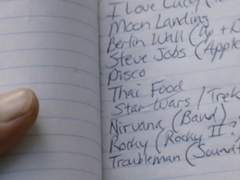 I Love Lucy
Moon Landing
Berlin Wall (up +
Steve Jobs (Apple
Disco
Thai Food
Star Wars / Trek
Nirvana (Band)
Rocky (Rocky II?
Troubleman (Soundt